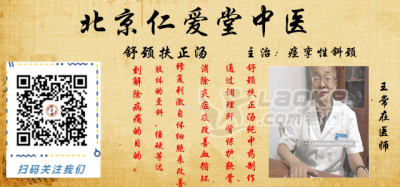 北京仁爱堂中医
舒颈扶正汤
主治：痉挛性斜颈
舒颈扶正汤纯中药制作
通过调理肝肾保护软骨
消除炎症及改善血循环
修复刺激自体细胞来改善
肢体的歪斜、僵硬等达
到解除病痛的目的。
王常在医师
扫码关注我们